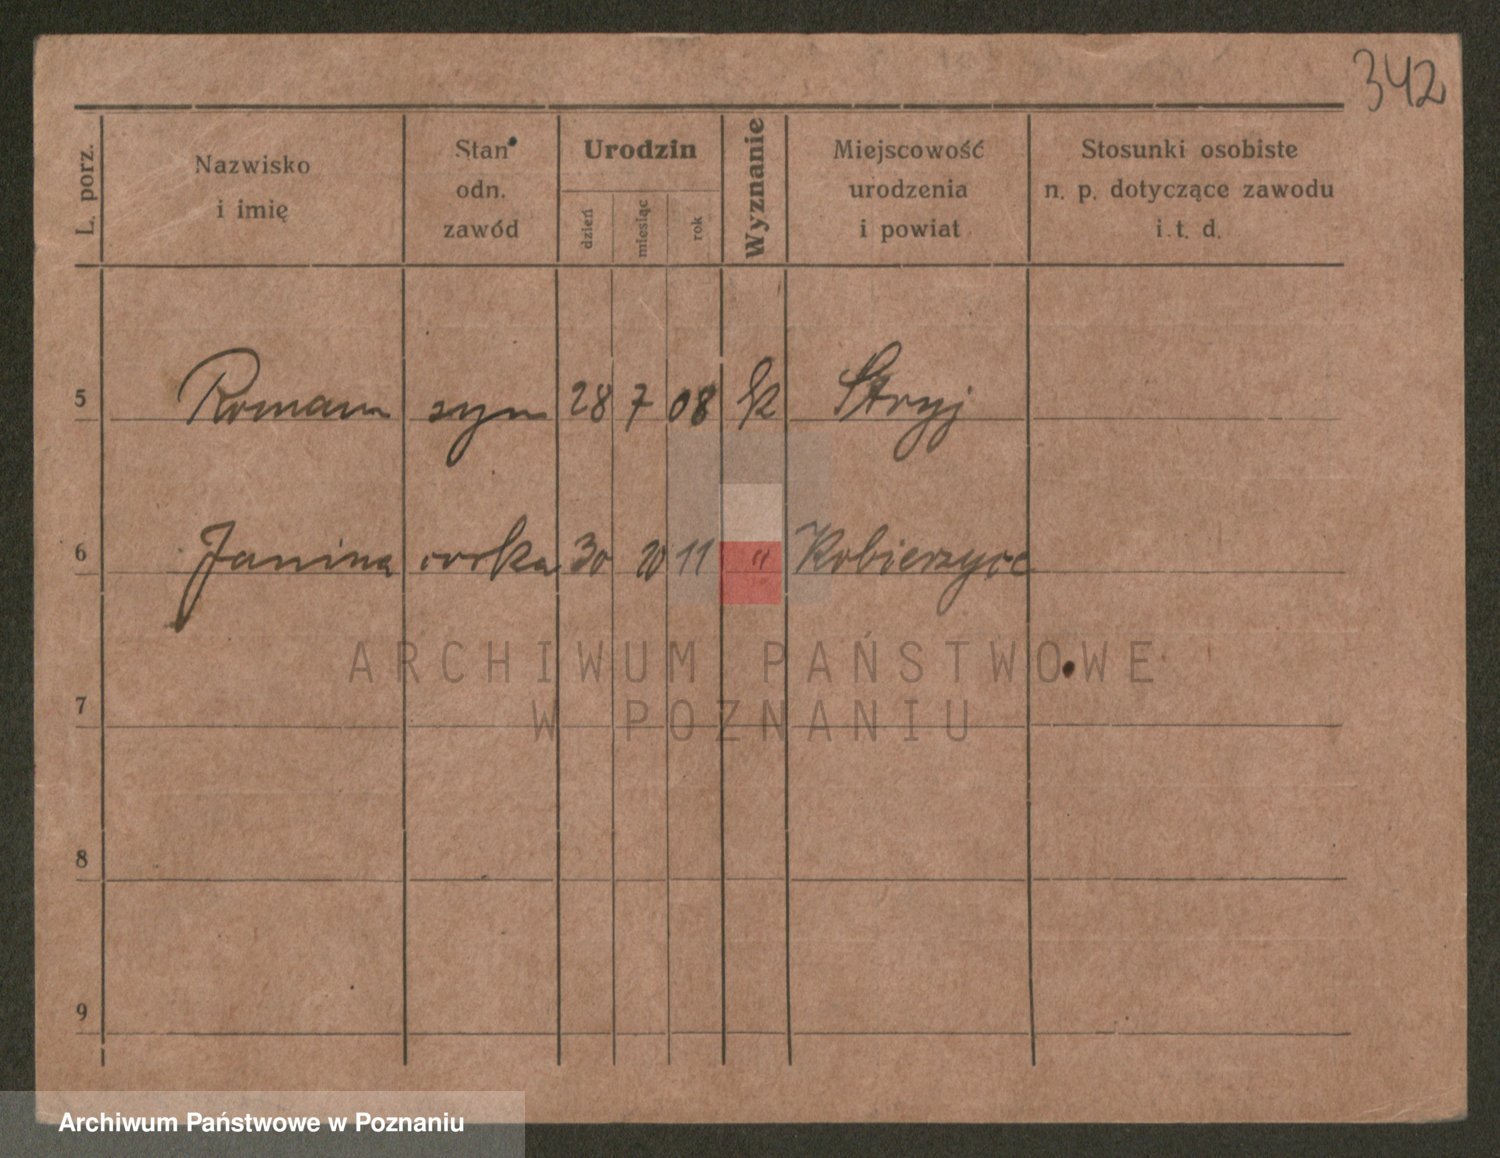 342
L. porz.
Nazwisko
i imię
Stan
odn.
zawód
Urodzin
dzień
miesiąc
rok
Wyznanie
Miejscowość
urodzenia
i powiat
Stosunki osobiste
n. p. dotyczące zawodu
i. t. d.
5 Roman syn 28 7 08 Stryj
6 Janina córka 30 11 " Kobierzyce
7
8
9
ARCHIWUM PAŃSTWOWE
W POZNANIU
Archiwum Państwowe w Poznaniu